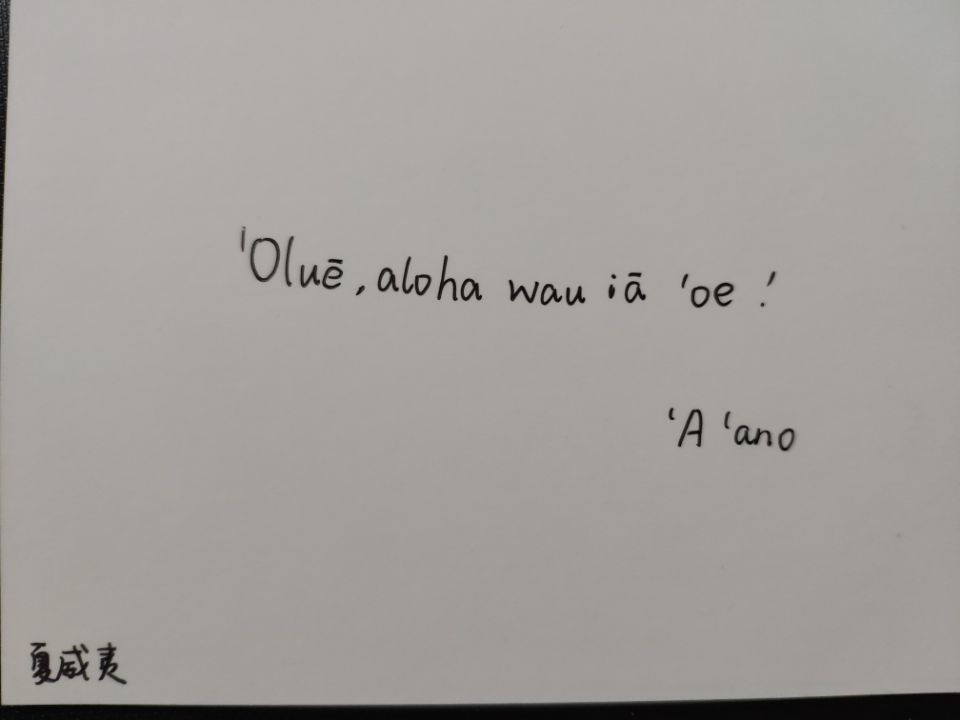 ʻOluē, aloha wau iā ʻoe!
ʻA ʻano
夏威夷